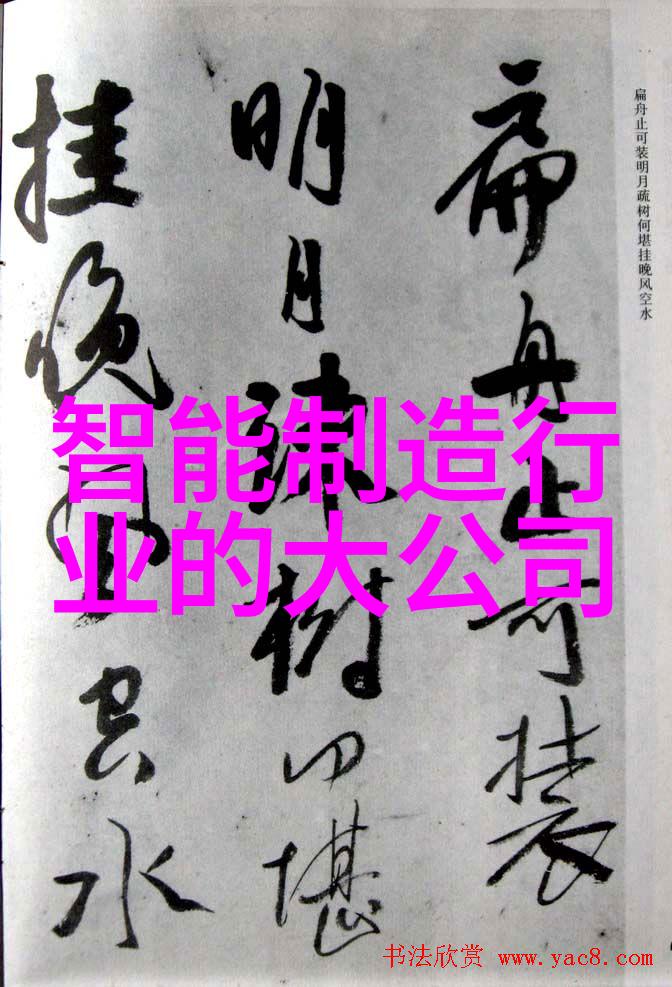 扁舟止可装
明月疏树何堪
挂晚风空水
扁舟止可装明月疏树何堪挂晚风空水
智能制造行
业的大公司
书法欣赏 www.yac8.com